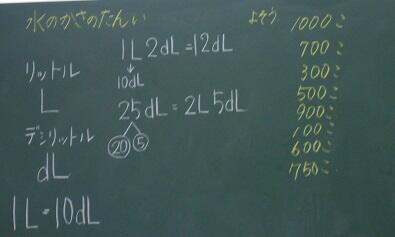 水のかさのたんい
リットル
L
デシリットル
dL
1L=10dL
1L2dL=12dL
↓
10dL
25dL=2L5dL
20 5
よそう
1000こ
700こ
300こ
500こ
900こ
100こ
600こ
750こ